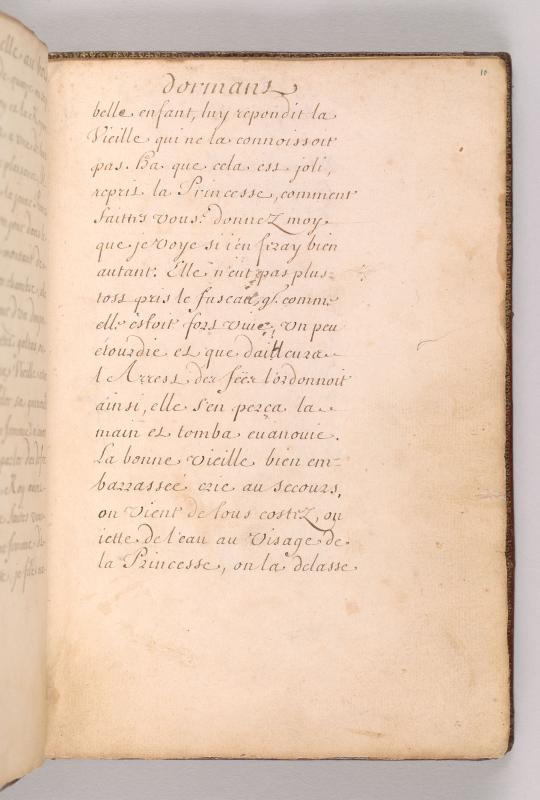 10
dormant
belle enfant, luy repondit la
Vieille qui ne la connoissoit
pas. Ha que cela est joli,
reprit la Princesse, comment
faittes vous? donnez moy
que je voye si i'en feray bien
autant. Elle n'eut pas plus-
tost pris le fuseau, q. comme
elle estoit fort vive, un peu
étourdie et que dailleurs
l'Arrest des féës l'ordonnoit
ainsi, elle s'en perça la
main et tomba evanouie.
La bonne vieille bien em-
barrasseé crie au secours,
on vient de tous costez, on
iette de l'eau au visage de
la Princesse, on la delasse